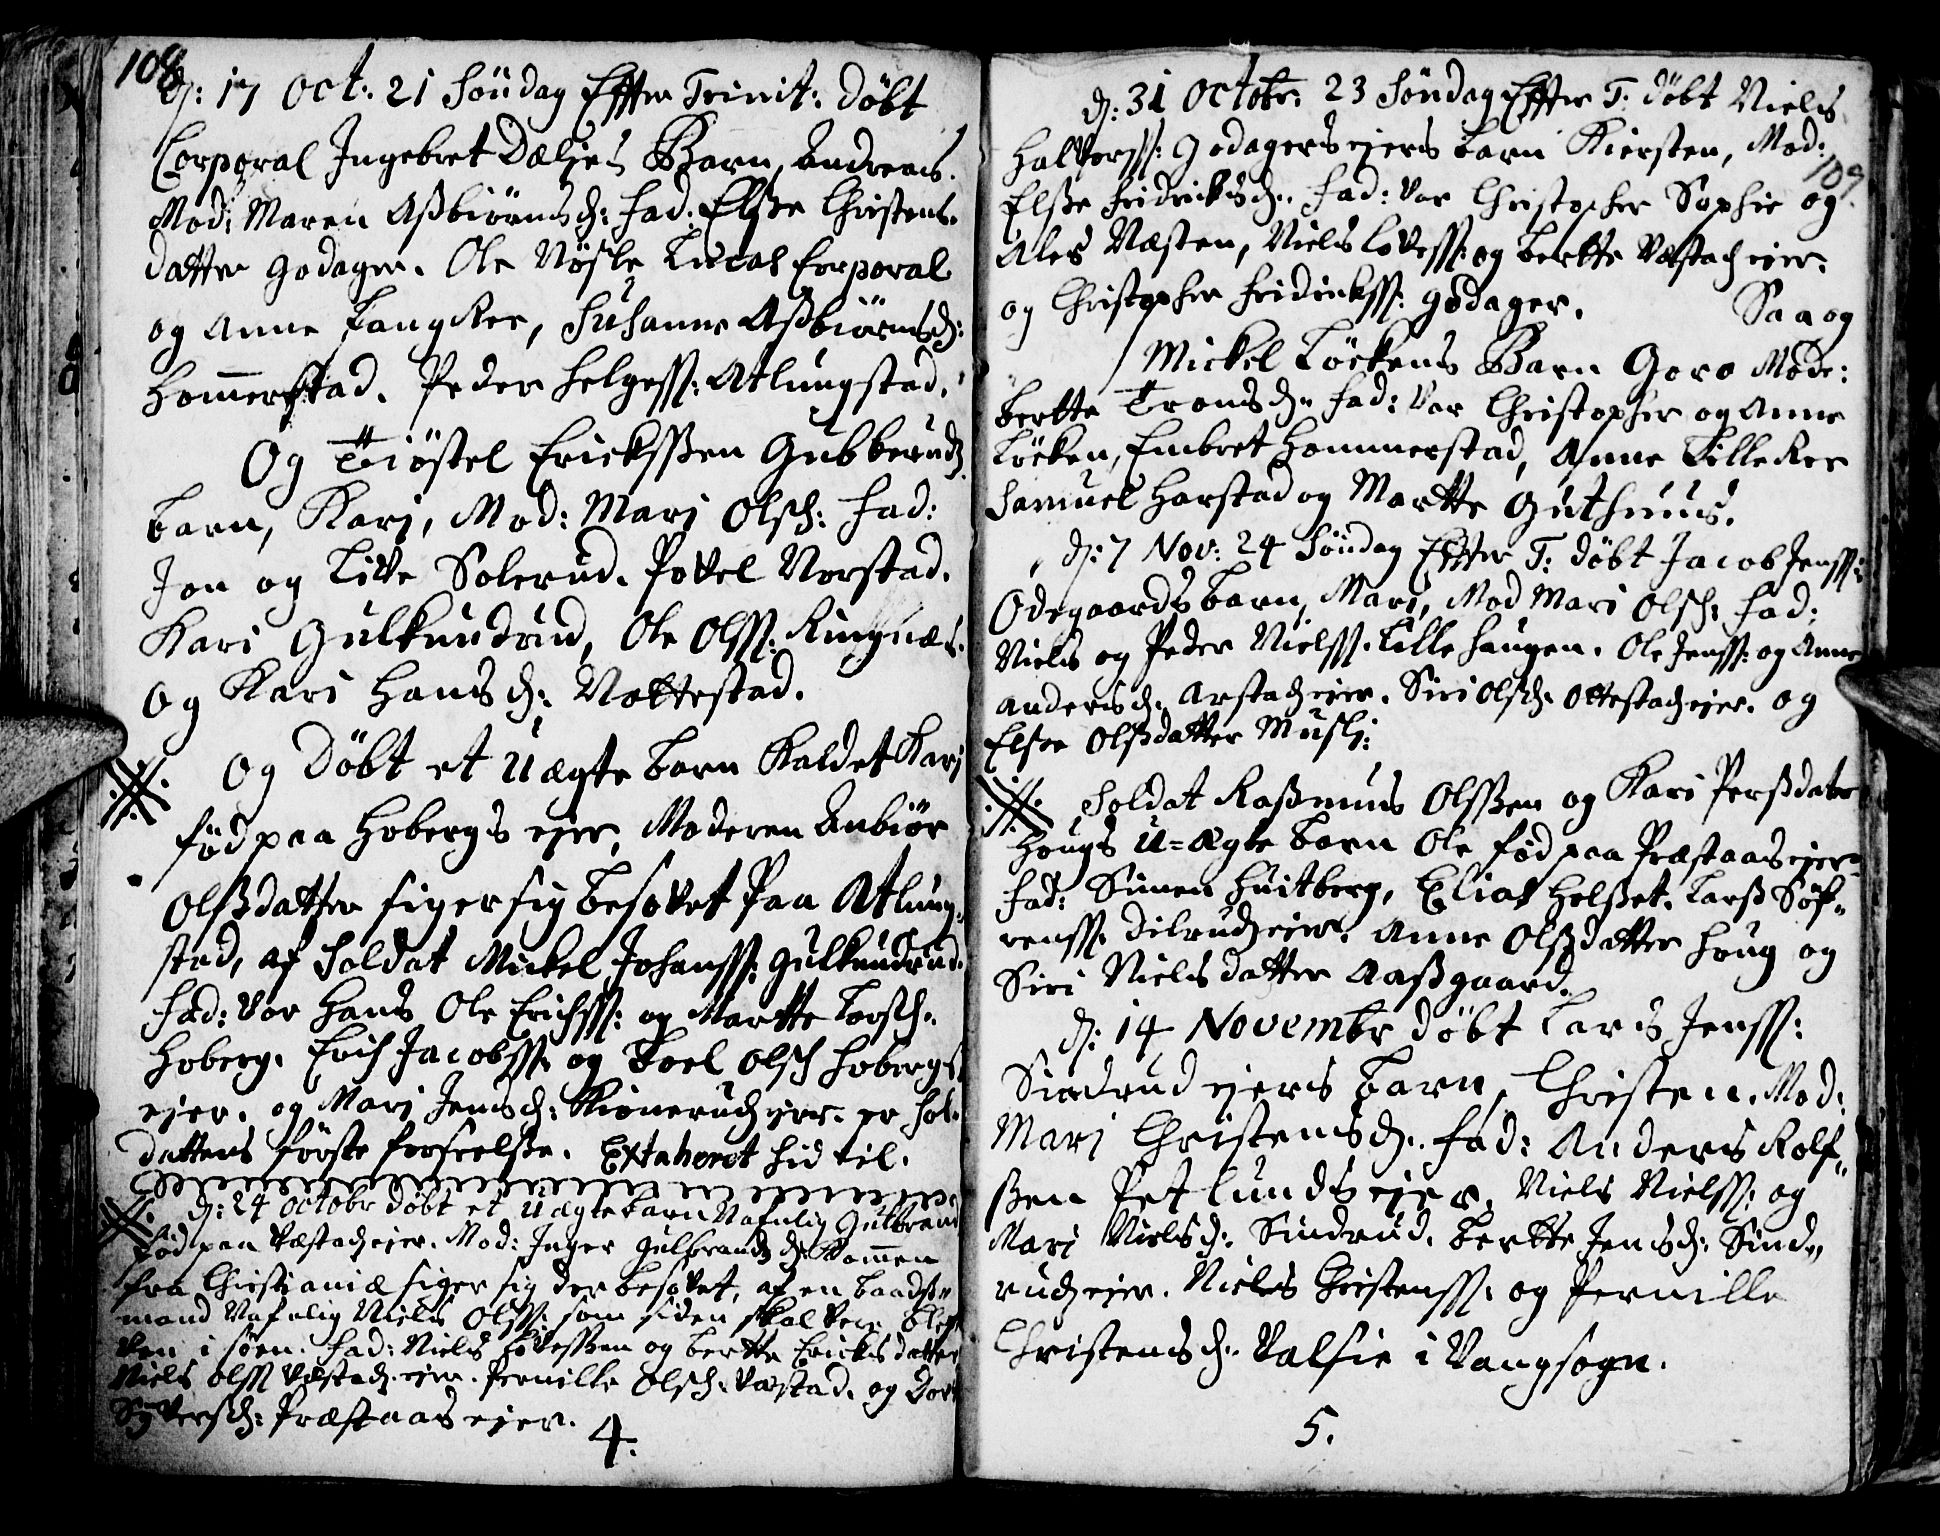 108
d: 17 Oct: 21 Søndag Effter Trinit: døbt
Corporal Ingebret Dæljes Barn, Andreas.
Mod: Maren Aßbiørnsd: Fad. Elße Christens-
datter Godager. Ole Nøsle Corporal
og Anne BangRee, Susanne Aßbiørnsd:
Hommerstad. Peder Helgess: Atlungstad.
Og Tiøstel Erickßen Gubberuds
barn, Karj, Mod: Marj Olsd: Fad:
Jon og Live Solerud. Povel Norstad.
Kari Gulknudrud, Ole Olss: Ringnæs.
og Kari Hansd: Nottestad.
Og Døbt et Uægte barn Kaldet Karj
fød paa Hobergs ejer, Moderen Anbiør
Olßdatter siger sig besovet Paa Atlung-
stad, af Soldat Mickel Johanss: Gulknudrud.
Fad: Var Hans Ole Erichss: og Martte Larsd.
Hoberg. Erich Jacobss. og Boel Olsd Hobergs
ejer. og Marj Jensd: Kionerudz ejer. er Sol-
dattens første forseelße. Extaheret hid til.
d: 24 Octobr døbt et Uægte barn Nafnlig Gulbrand
fød paa Væstadz ejer. Mod: Inger Gulbrandsd: Kommen
fra Christiania siger sig der besovet, af en baads-
mand Nafnlig Niels Olss: som siden skal være bleg-
ven i søen. Fad: Niels Loveßen og Bertte Ericksdatter
Niels Olss Væstadz ejer. Pernille Olsd. Væstad. og Dort
Syversd: Præstaas ejer.
4.
109.
d: 31 Octobr: 23 Søndag Effter T: døbt Niels
Halvorss: Godagers ejers barn Kiersten, Mod:
Elße Fridricksd. Fad: Var Christopher Sophie og
Ales Næsten, Niels Lovess. og Bertte Væstad ejer.
og Christopher Fridrickss: Godager. Saa og
Mickel Løckens Barn Goro Mode:
Bertte Tronsd. Fad: Var Christopher og Anne
Løcken, Embret Hommerstad, Anne LilleRee
Samuel Harstad og Martte Guthuus.
d: 7 Nov: 24 Søndag Effter T: døbt Jacob Jenss:
Ødegaards barn, Mari, Mod Mari Olsd: Fad:
Niels og Peder Nielss. Lille Haugen. Ole Jenss: og Anne
Andersd. Arstadz ejer. Siri Olsd. Ottestadz ejer. og
Elsee Olßdatter Muslj:
Soldat Raßmus Olßen og Kari Persdatr
Hougs U=ægte barn Ole fød paa Præstaas ejer
Fad: Simen Huitberg, Elias Holßet. Lars Søf-
renss. Dilrudz ejer. Anne Olßdatter Houg og
Siri Nielsdatter Aaßgaard.
d: 14 Novembr døbt Lars Jenss:
Sindrud ejers barn, Christen. Mod:
Marj Christensd. Fad: Anders Rolf-
ßen Petlunds ejer. Niels Nielss: og
Mari Nielsd: Sindrud. Bertte Jensd: Sind-
rudz ejer. Niels Christenss. og Pernille
Christensd. Valsie i Vangsogn.
5.